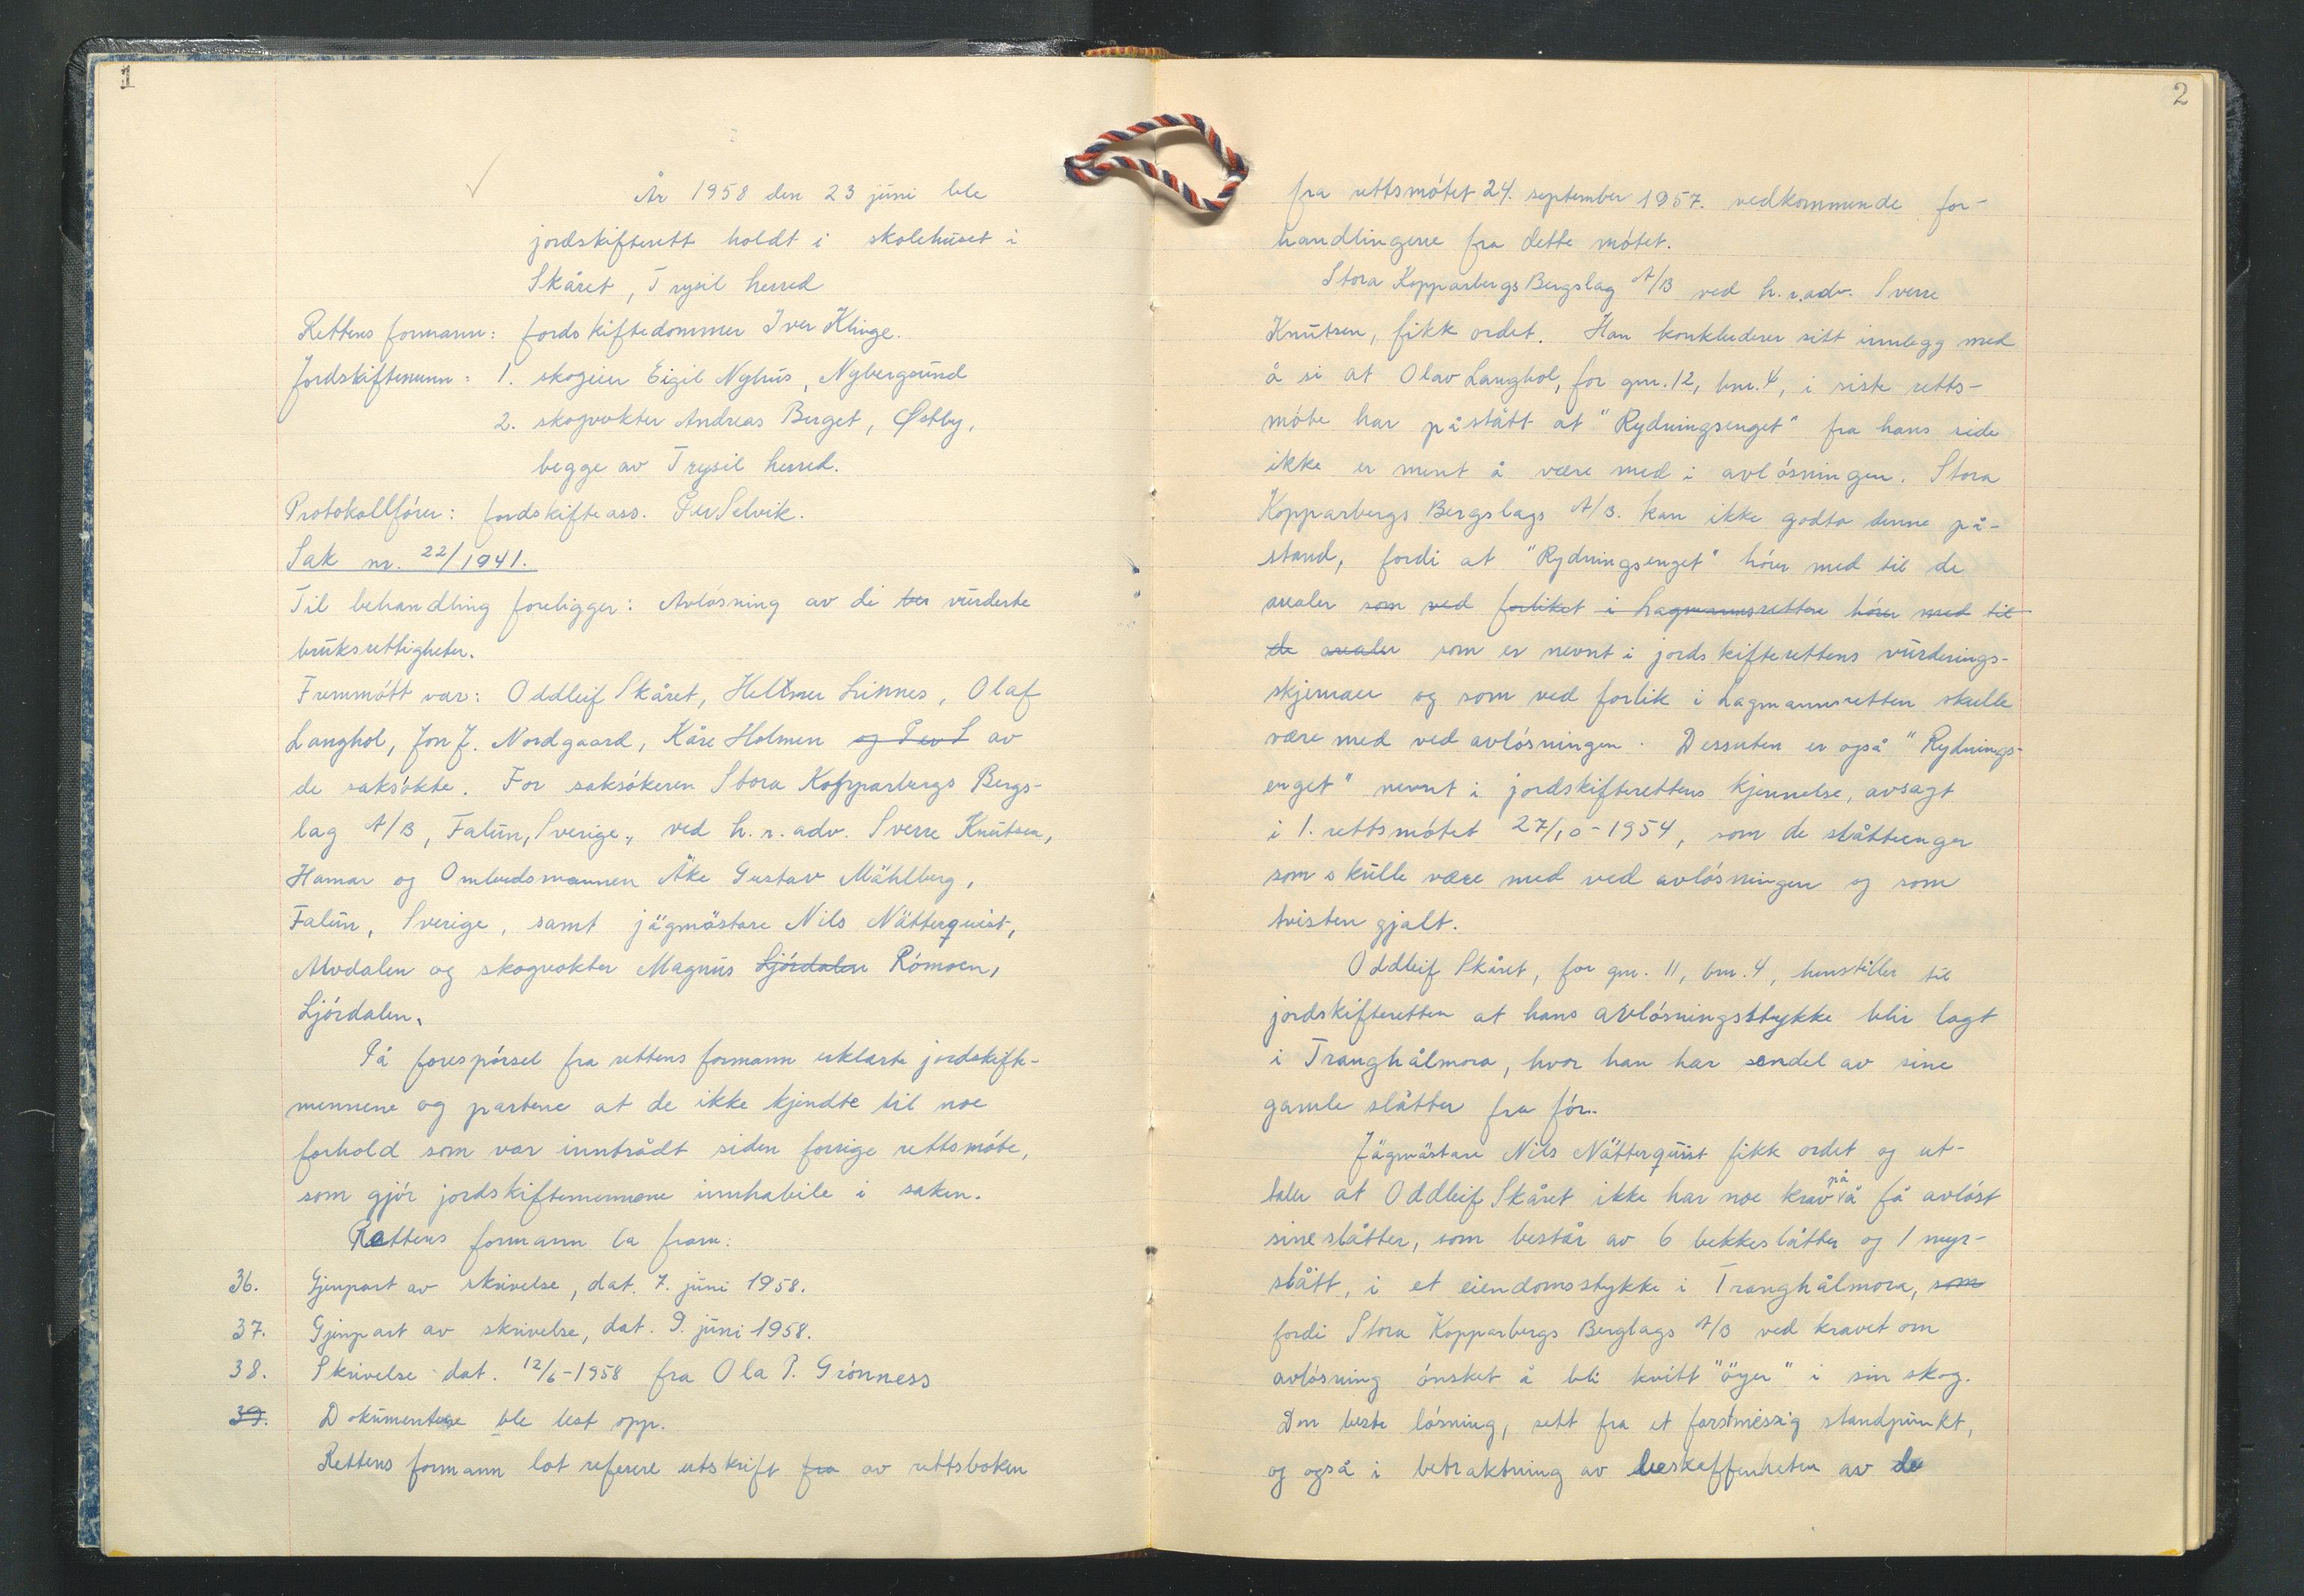 1
År 1958 den 23 juni ble
jordskifterett holdt i skolehuset i
Skåret, Trysil herred
Rettens formann: jordskiftedommer Iver Klinge.
Jordskiftemenn: 1. skogeier Eigil Nyhus, Nybergsund
2. skogvokter Andreas Berget, Østby,
begge av Trysil herred.
Protokollfører: jordskifteass. Per Selvik.
Sak nr. 22/1941.
Til behandling foreligger: Avløsning av de ber vurderte
bruksrettigheter.
Fremmøtt var: Oddleif Skåret, Helmer Linnes, Olaf
Langhol, Jon J. Nordgaard, Kåre Holmen og Per S av
de saksøkte. For saksøkeren Stora Kopparbergs Bergs-
lag A/B, Falun, Sverige, ved h.r.adv. Sverre Knutsen,
Hamar og Ombudsmannen Åke Gustav Mählberg,
Falun, Sverige, samt jägmästare Nils Nätterquist,
Älvdalen og skogvokter Magnus Ljørdalen Rømoen,
Ljørdalen.
På forespørsel fra rettens formann erklærte jordskifte-
mennene og partene at de ikke kjendte til noe
forhold som var inntrådt siden forrige rettsmøte,
som gjør jordskiftemennene innhabile i saken.
Rettens formann la fram:
36. Gjenpart av skrivelse, dat. 7. juni 1958.
37. Gjenpart av skrivelse, dat. 9. juni 1958.
38. Skrivelse dat. 12/6-1958 fra Ola P. Grønness
39. Dokumentene ble lest opp.
Rettens formann lot referere utskrift fra av rettsboken
2
fra rettsmøtet 24. september 1957. vedkommende for-
handlingene fra dette møtet.
Stora Kopparbergs Bergslag A/B ved h.r.adv. Sverre
Knutsen, fikk ordet. Han konkluderer sitt innlegg med
å si at Olav Langhol, for gnr. 12, bnr. 4, i siste retts-
møte har påstått at "Rydningsenget" fra hans side
ikke er ment å være med i avløsningen. Stora
Kopparbergs Bergslags A/B. kan ikke godta denne på-
stand, fordi at "Rydningsenget" hører med til de
arealer som ved forliket i Lagmannsretten hører med til
de arealer som er nevnt i jordskifterettens vurderings-
skjemaer og som ved forlik i Lagmannsretten skulle
være med ved avløsningen. Dessuten er også "Rydnings-
enget" nevnt i jordskifterettens kjennelse, avsagt
i 1. rettsmøtet 27/10-1954, som de slåtteenger
som skulle være med ved avløsningen og som
tvisten gjalt.
Oddleif Skåret, for gnr. 11, bnr. 4, henstiller til
jordskifteretten at hans avløsningsstykke blir lagt
i Tranghålmora, hvor han har endel av sine
gamle slåtter fra før.
Jägmästare Nils Nätterquist fikk ordet og ut-
taler at Oddleif Skåret ikke har noe krav på å få avløst
sine slåtter, som består av 6 bekkeslåtter og 1 myr-
slått, i et eiendomsstykke i Tranghålmora, som
fordi Stora Kopparbergs Berglags A/B ved kravet om
avløsning ønsket å bli kvitt "öyer" i sin skog.
Den beste løsning, sett fra et forstmessig standpunkt,
og også i betraktning av beskaffenheten av de